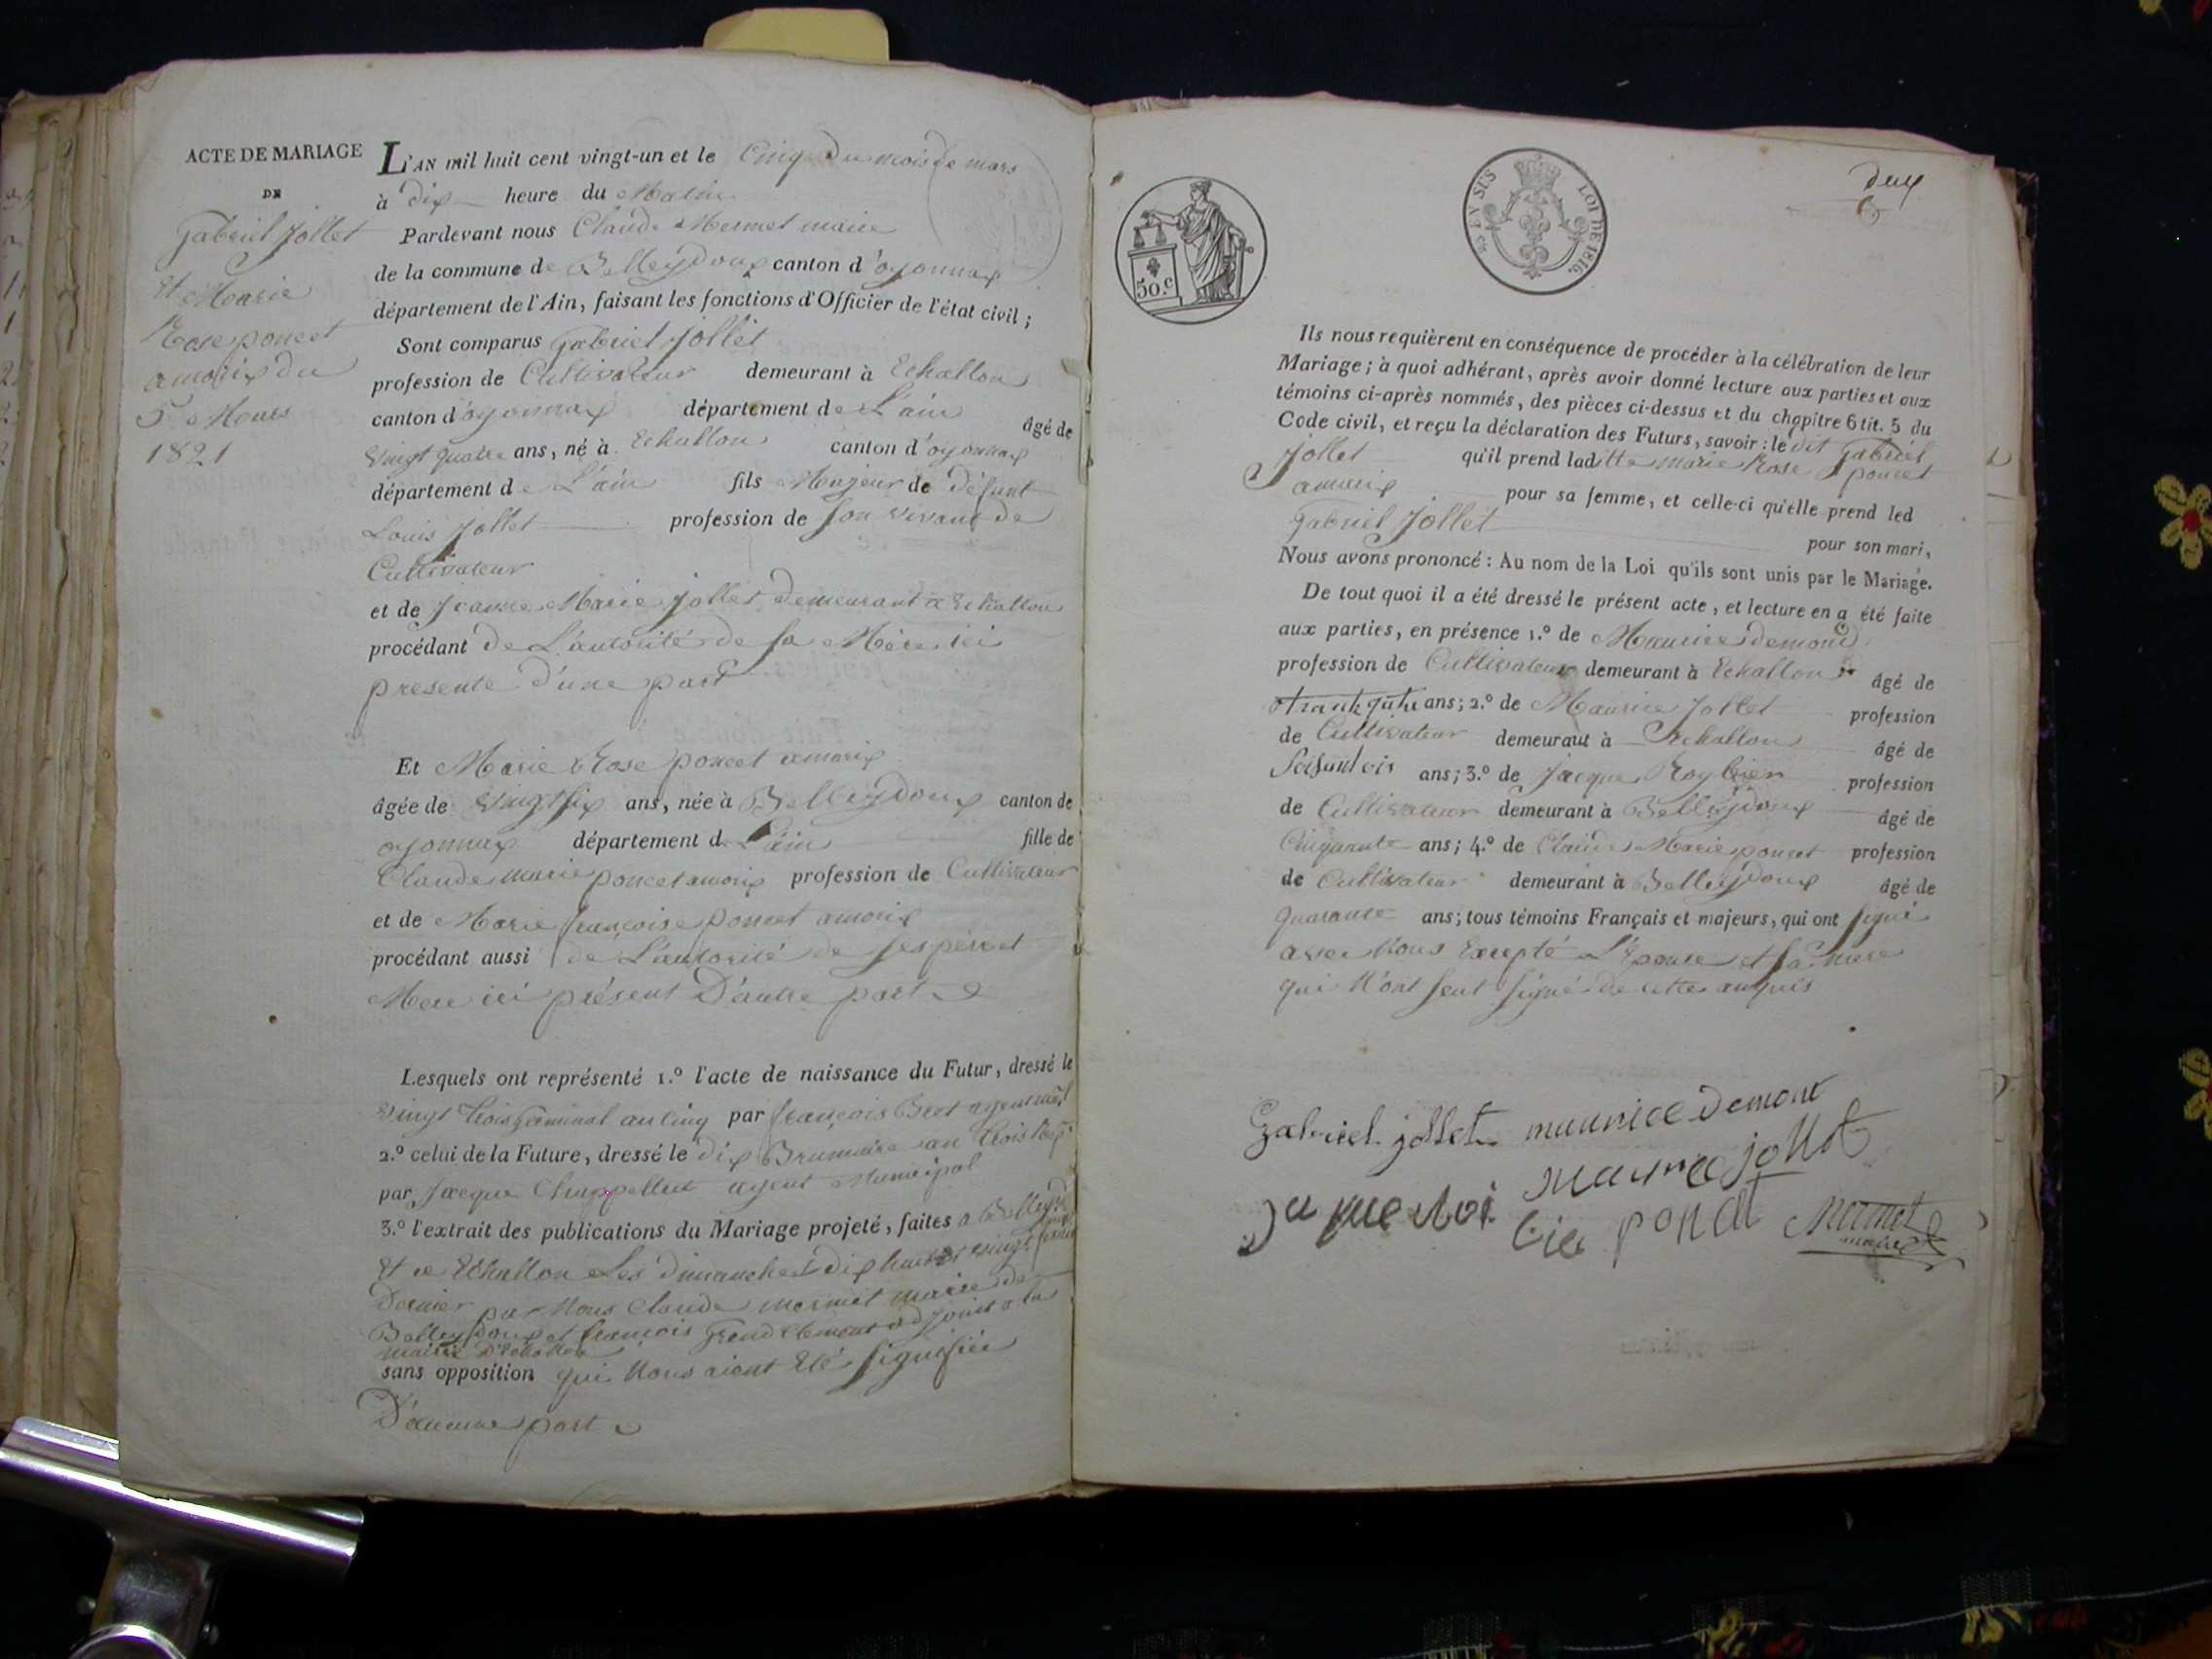 ACTE DE MARIAGE
DE
Gabriel Jollet
Et Marie
Rose poncet
amorix du
5 Mars
1821
L'AN mil huit cent vingt-un et le Cinq du mois de mars
à dix heure du Matin
Pardevant nous Claude Mermet maire
de la commune de Belleydoux canton d'oyonnax
département de l'Ain, faisant les fonctions d'Officier de l'état civil;
Sont comparus Gabriel Jollet
profession de Cultivateur demeurant à Echallon
canton d'oyonnax département de L'ain âgé de
vingt quatre ans, né à Echallon canton d'oyonnax
département de L'ain fils Majeur de défunt
Louis Jollet profession de son vivant de
Cultivateur
et de Jeanne Marie Jollet demeurant a Echallon
procédant de L'autorité de sa Mère ici
presente d'une part
Et Marie Rose poncet amorix
âgée de vingt six ans, née à Belleydoux canton de
oyonnax département de L'ain fille de
Claude marie poncet amorix profession de Cultivateur
et de Marie françoise poncet amorix
procédant aussi de L'autorité de ses père et
Mere ici présent D'autre part
Lesquels ont représenté 1.º l'acte de naissance du Futur, dressé le
vingt trois Germinal an cinq par françois Brot agent
2.º celui de la Future, dressé le dix Brumaire an trois
par Jacque Chappellut agent Municipal
3.º l'extrait des publications du Mariage projeté, faites a
Et a Echallon Les dimanches dix huit et vingt
Dernier par Nous Claude mermet maire de
Belleydoux et françois Grand Clement adjoint a la
mairie D'Echallon
sans opposition qui Nous aient Eté signifiée
D'aucune part
50.C
EN SUS
LOI DE 1816.
deux
Ils nous requièrent en conséquence de procéder à la célébration de leur
Mariage; à quoi adhérant, après avoir donné lecture aux parties et aux
témoins ci-après nommés, des pièces ci-dessus et du chapitre 6 tit. 5 du
Code civil, et reçu la déclaration des Futurs, savoir: le dit Gabriel
Jollet qu'il prend laditte marie Rose poncet
amorix pour sa femme, et celle-ci qu'elle prend led
Gabriel Jollet pour son mari,
Nous avons prononcé: Au nom de la Loi qu'ils sont unis par le Mariage.
De tout quoi il a été dressé le présent acte, et lecture en a été faite
aux parties, en présence 1.º de Maurice demond
profession de Cultivateur demeurant à Echallon âgé de
ans; 2.º de Maurice Jollet profession
de Cultivateur demeurant à Echallon âgé de
ans; 3.º de Jacque Roybier profession
de Cultivateur demeurant à Belleydoux âgé de
Cinquante ans; 4.º de Claude Marie poncet profession
de Cultivateur demeurant à Belleydoux âgé de
quarante ans; tous témoins Français et majeurs, qui ont signé
avec Nous Excepté L'Epouse et sa mere
qui N'ont seut signé de cette anquis
Gabriel jollet maurice demont
maurice jollet
poncet Mermet
maire